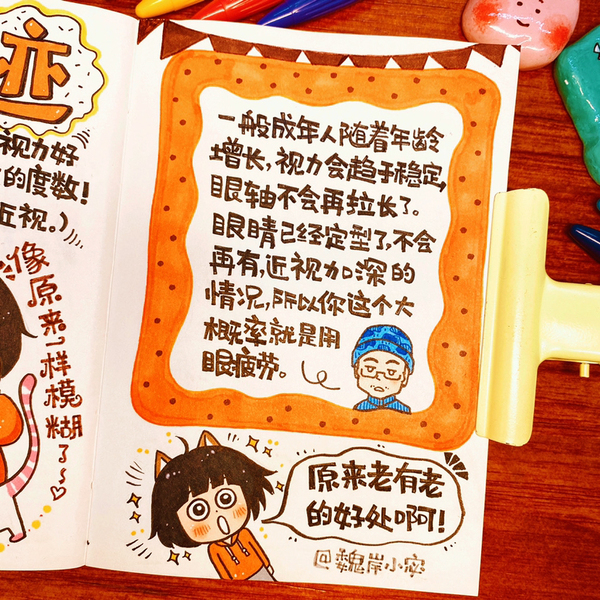 迹
视力好
的度数!
近视。)
像原来一样模糊了~
一般成年人随着年龄
增长,视力会趋于稳定,
眼轴不会再拉长了。
眼睛已经定型了,不会
再有,近视加深的
情况,所以你这个大
概率就是用
眼疲劳。
原来老有老
的好处啊!
@魏岸小宓